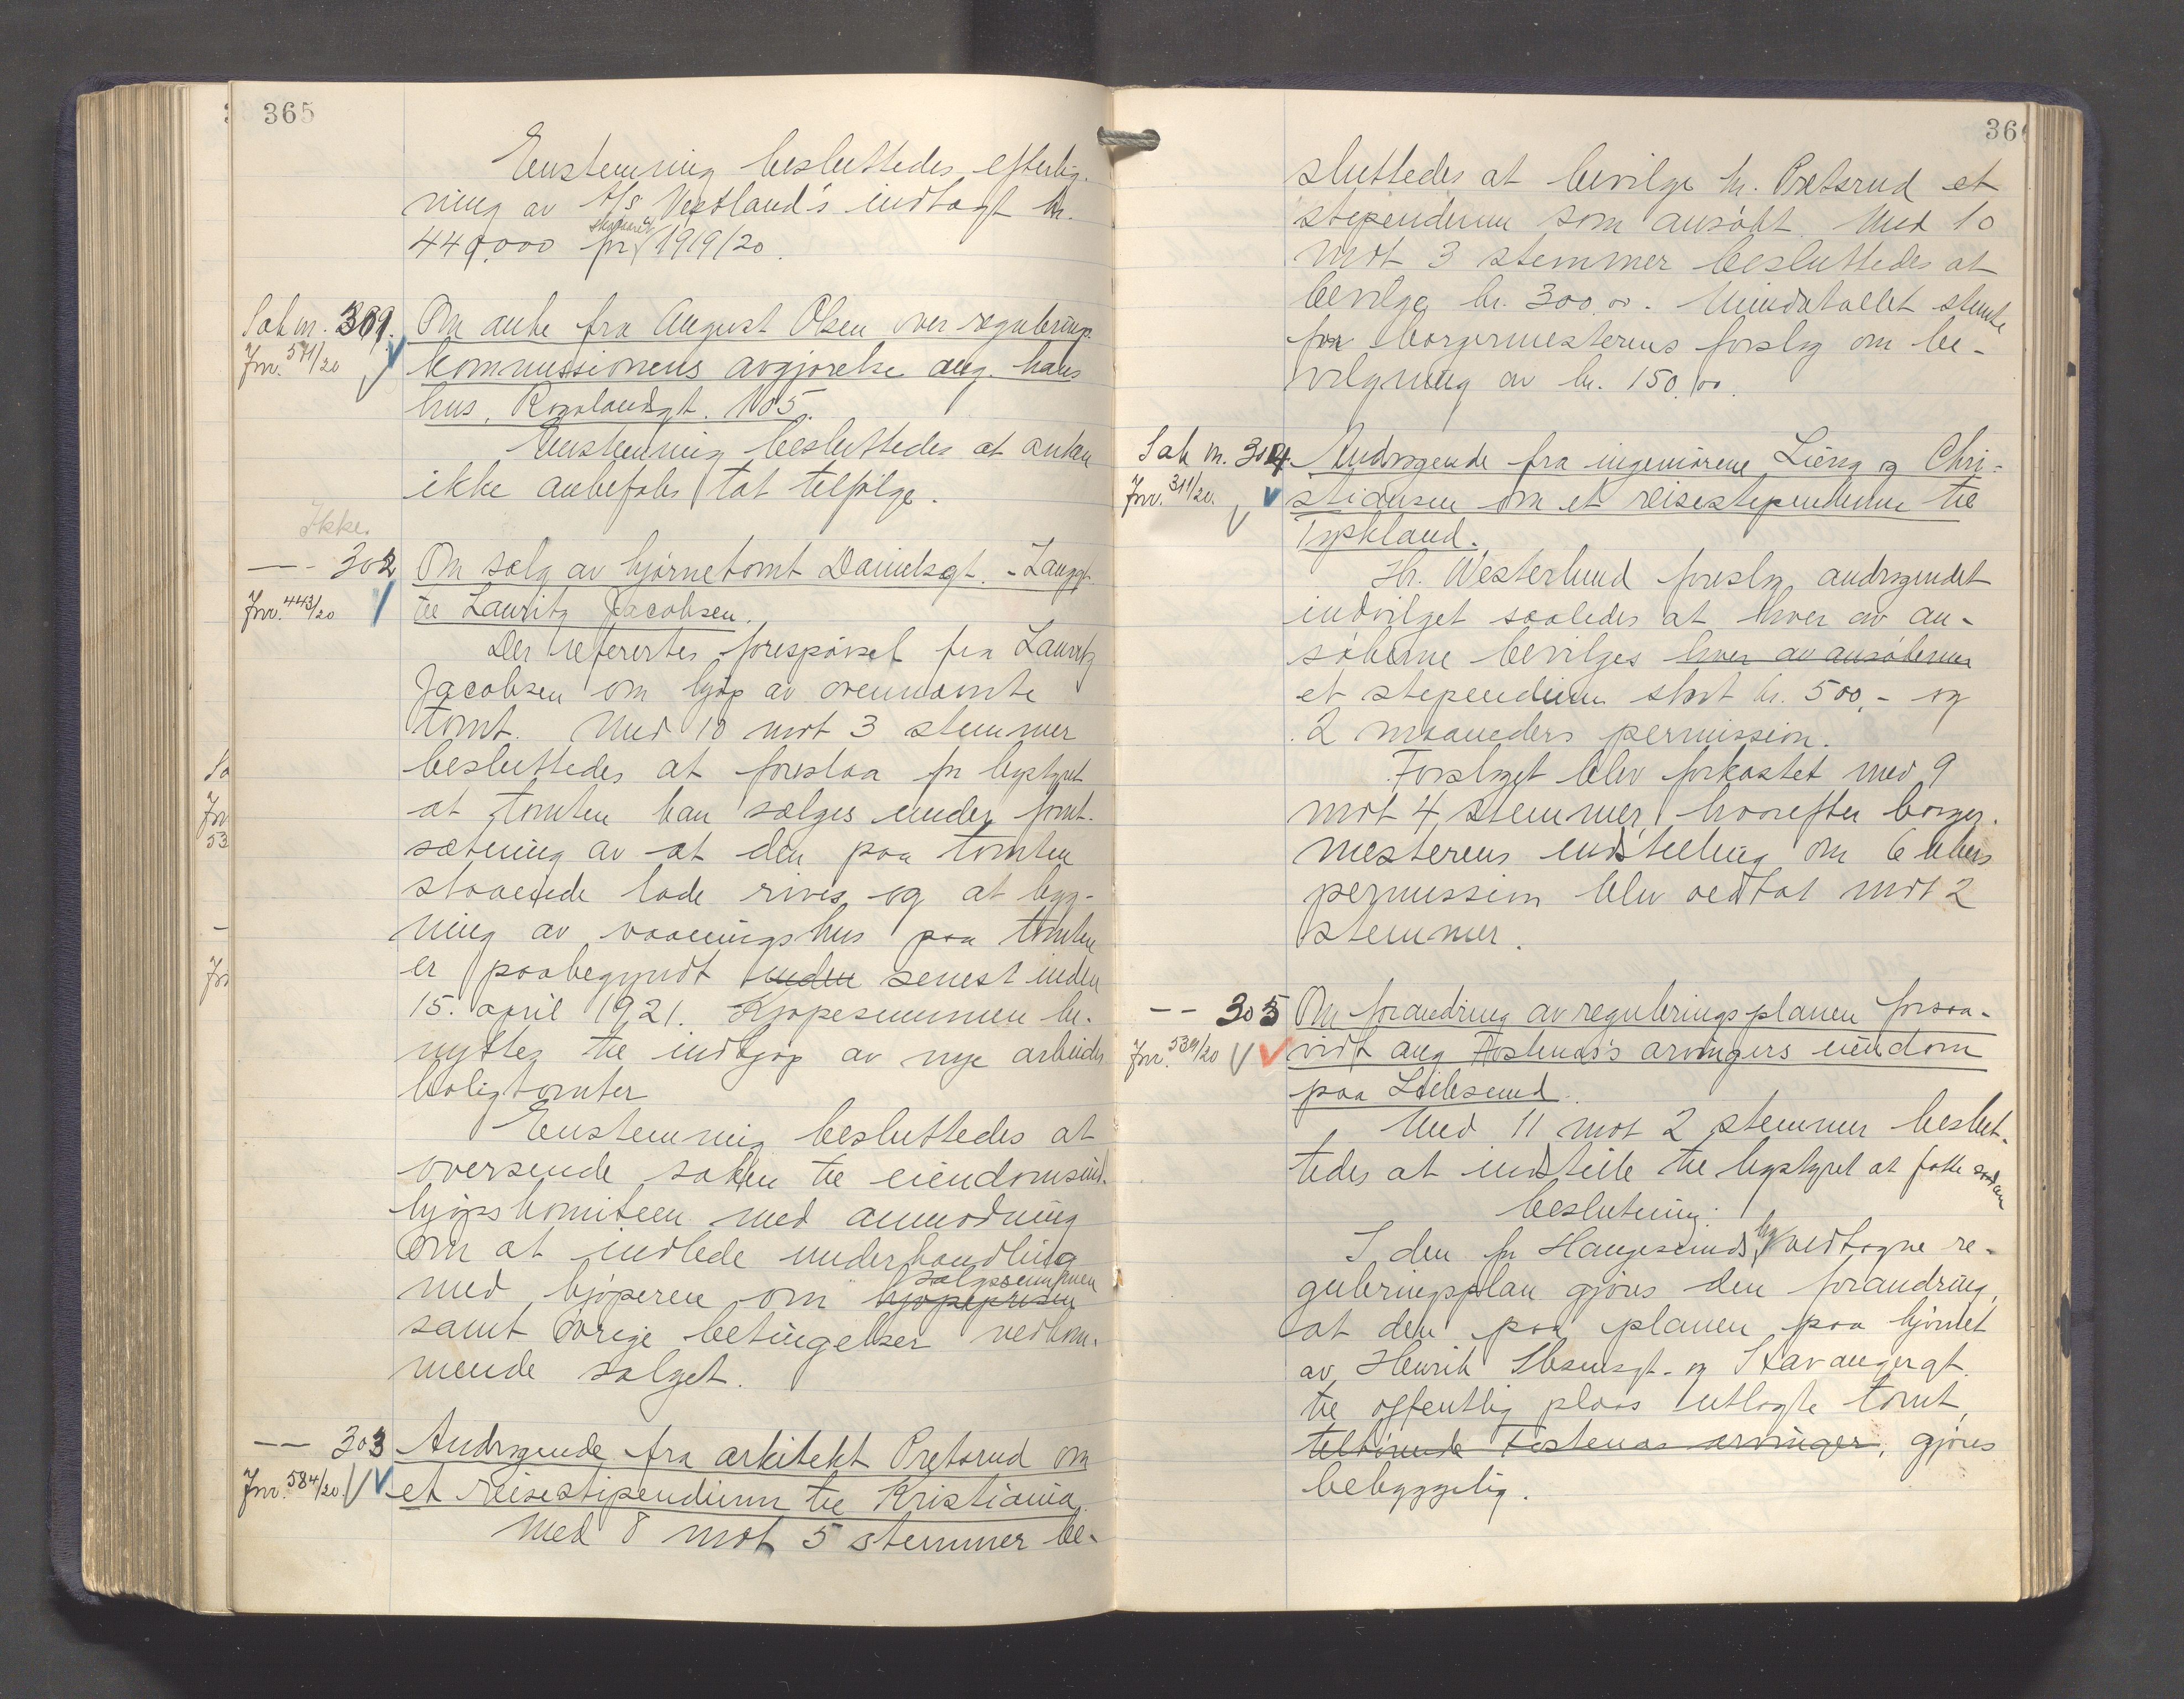 365
Enstemmig besluttedes efterlig-
ning av A/S Vestland's indtægt kr.
440,000 pr skatteaaret 1919/20.
Sak nr. 301. Om anke fra August Olsen over regulerings-
Jnr. 571/20 kommissionens avgjørelse ang. hans
hus, Rogalandsgt. 105.
Enstemmig besluttedes at anken
ikke anbefales tat tilfølge.
Ikke
-- 302 Om salg av hjørnetomt Danielsgt. - Langgt.
Jnr. 443/20 til Lauritz Jacobsen.
Der refertes forespørsel fra Lauritz
Jacobsen om kjøp av ovennævnte
tomt. Med 10 mot 3 stemmer
besluttedes at foreslaa for bystyret
at tomten kan sælges under forut-
sætning av at den paa tomten
staaende lade rives og at byg-
ning av vaaningshus paa tomten
er paabegyndt inden senest inden
15. april 1921. Kjøpesummen be-
nyttes til indkjøp av nye arbeider
boligtomter
Enstemmig besluttedes at
oversende saken til eiendomsind-
kjøpskomiteen med anmodning
om at indlede underhandling
med kjøperen om kjøpeprisen salgssummen
samt øvrige betingelser vedkom-
mende salget.
-- 303 Andragende fra arkitekt Pretsrud om
Jnr. 584/20. et reisestipendium til Kristiania.
Med 8 mot 5 stemmer be-
366
sluttedes at bevilge hr. Pretsrud et
stependium som ansøkt. Med 10
mot 3 stemmer besluttedes at
bevilge kr. 300.00. Mindretallet stemte
for borgermesterens forslag om be-
vilgning av kr. 150.00.
Sak nr. 304. Andragende fra ingeniørene Liëng og Chri-
Jnr. 311/20. stiansen om et reisestependium til
Tyskland.
Hr. Westerlund foreslog andragendet
indvilget saaledes at hver av an-
søkerne bevilges hver av ansøkerne
et stependium stort kr. 500,- og
2 maaneders permission.
Forslaget blev forkastet med 9
mot 4 stemmer, hvorefter borger-
mesterens indstilling om 6 ukers
permission blev vedtat mot 2
stemmer.
-- 305 Om forandring av reguleringsplanen forsaa-
Jnr. 539/20 vidt ang. Tostenæs's arvingers eiendom
paa Lillesund.
Med 11 mot 2 stemmer beslut-
tedes at indstille til bystyret at fatte saadan
beslutning:
I den for Haugesunds by vedtagne re-
guleringsplan gjøres den forandring,
at den paa planen paa hjørnet
av Henrik Ibsensgt. og Stavangergt.
til offentlig plads utlagte tomt,
tilhørende Tostenæs arvinger, gjøres
bebyggelig.